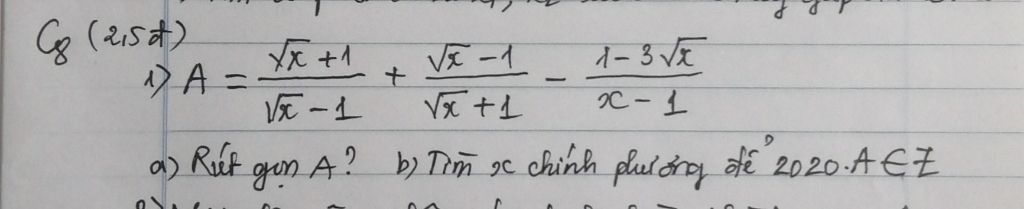 C8 (2,5đ)
1) A = \frac{\sqrt{x}+1}{\sqrt{x}-1} + \frac{\sqrt{x}-1}{\sqrt{x}+1} - \frac{1-3\sqrt{x}}{x-1}
a) Rút gọn A? b) Tìm x chính phương để 2020.A ∈ Z